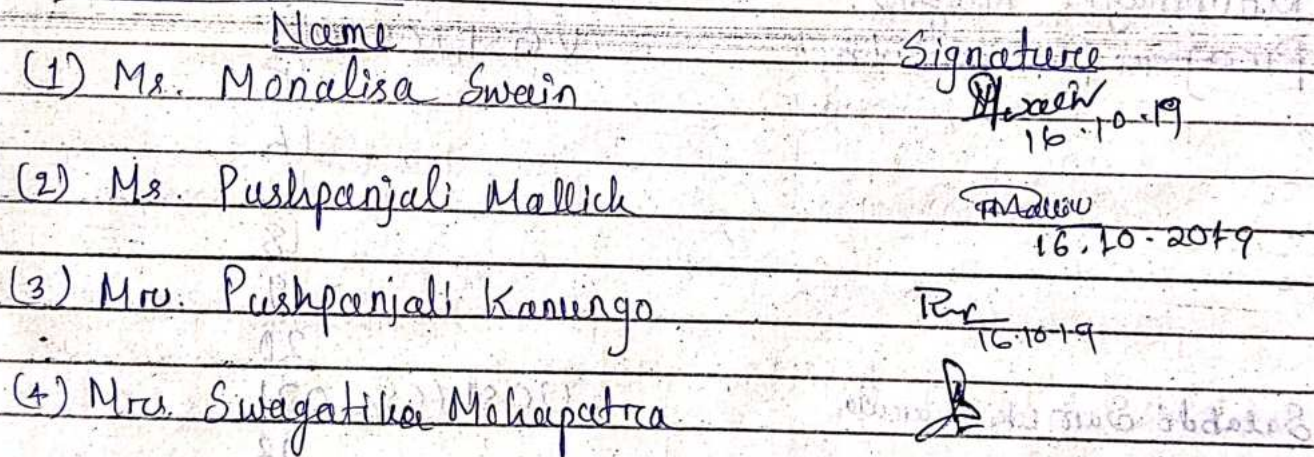 Name Signature
(1) Ms. Monalisa Swain
16.10.19
(2) Ms. Pushpanjali Mallick
16.10.2019
(3) Mrs. Pushpanjali Kanungo
16.10.19
(4) Mrs. Swagatika Mohapatra